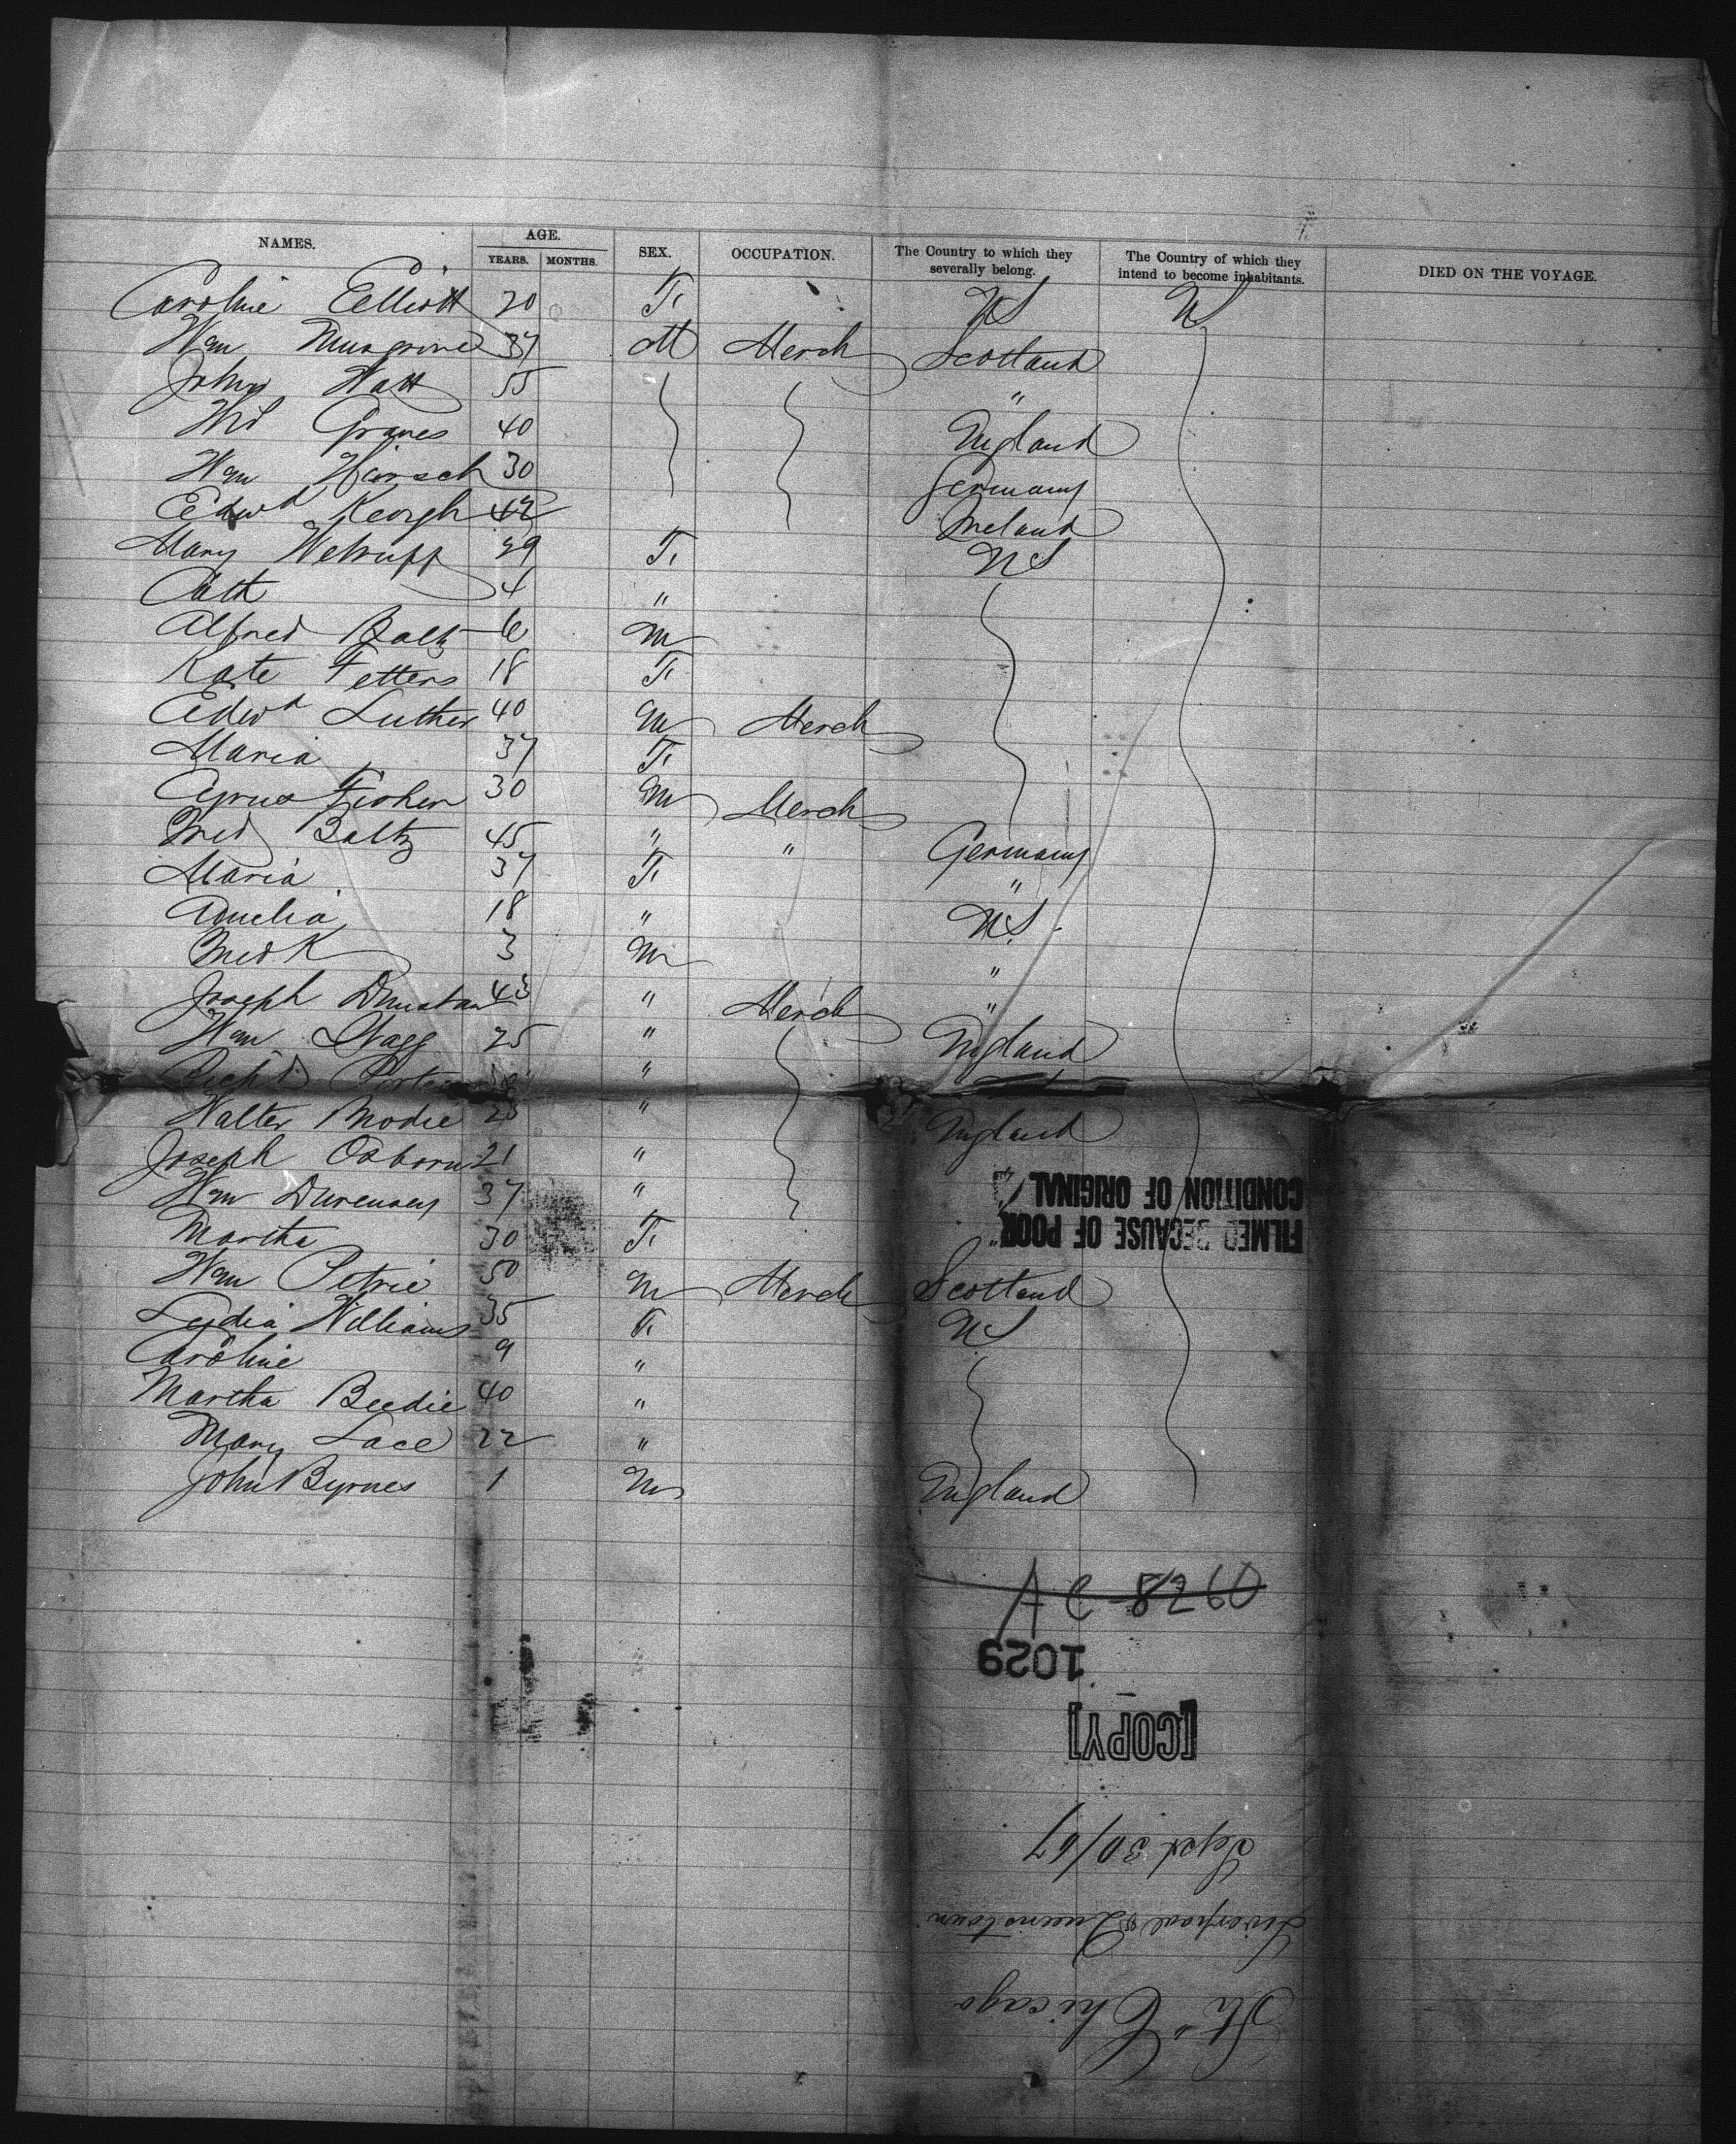 NAMES. AGE. SEX. OCCUPATION. The Country to which they severally belong. The Country of which they intend to become inhabitants. DIED ON THE VOYAGE.
YEARS. MONTHS.
Caroline Elliott 20 F. US US
Wm Musgrove 37 M Merch Scotland
John Watt 55 "
Graves 40 England
Wm Hirsch 30 Germany
Edwd Keogh 42 Ireland
Mary 29 F. US
Cath 4 "
Alfred Baltz 6 M
Kate Fetters 18 F.
Edwd Luther 40 M Merch
Maria 37 F.
Cyrus Fisher 30 M Merch
Fred Baltz 45 " " Germany
Maria 37 F. "
Amelia 18 " US.
Fred K 3 M "
Joseph Dunstan 43 " Merch "
Wm Stagg 25 " England
Richd Porter "
Walter Brodie 25 " England
Joseph Osborn 21 "
Wm 37 "
Martha 30 F.
Wm Petrie 50 M Merch Scotland
Lydia Williams 35 F. US
Caroline 9 "
Martha Beedie 40 "
Mary Lace 22 "
John Byrnes 1 M England
FILMED BECAUSE OF POOR
CONDITION OF ORIGINAL
AC 8260
1029
[COPY]
Str Chicago
Liverpool & Queenstown
Sept 30/67